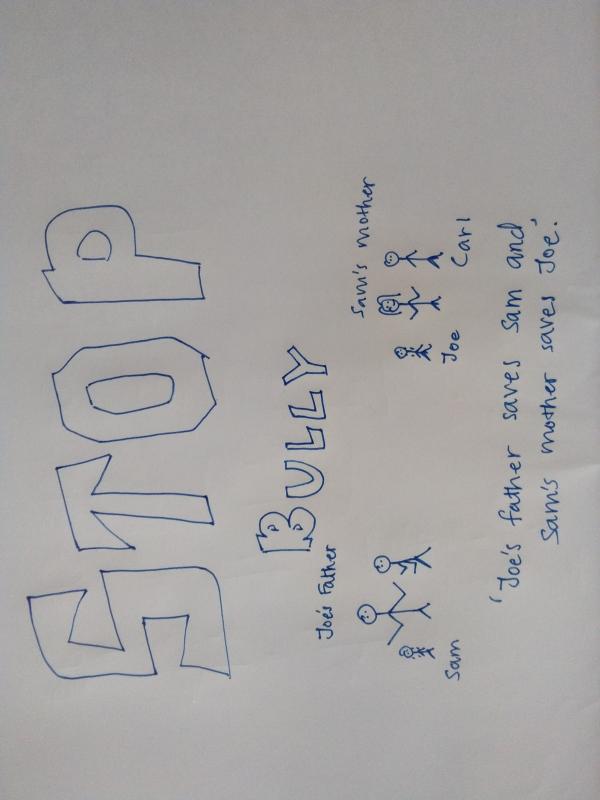 STOP
BULLY
Joe's Father
Sam's mother
Sam
Joe
Carl
'Joe's father saves Sam and
Sam's mother saves Joe.'